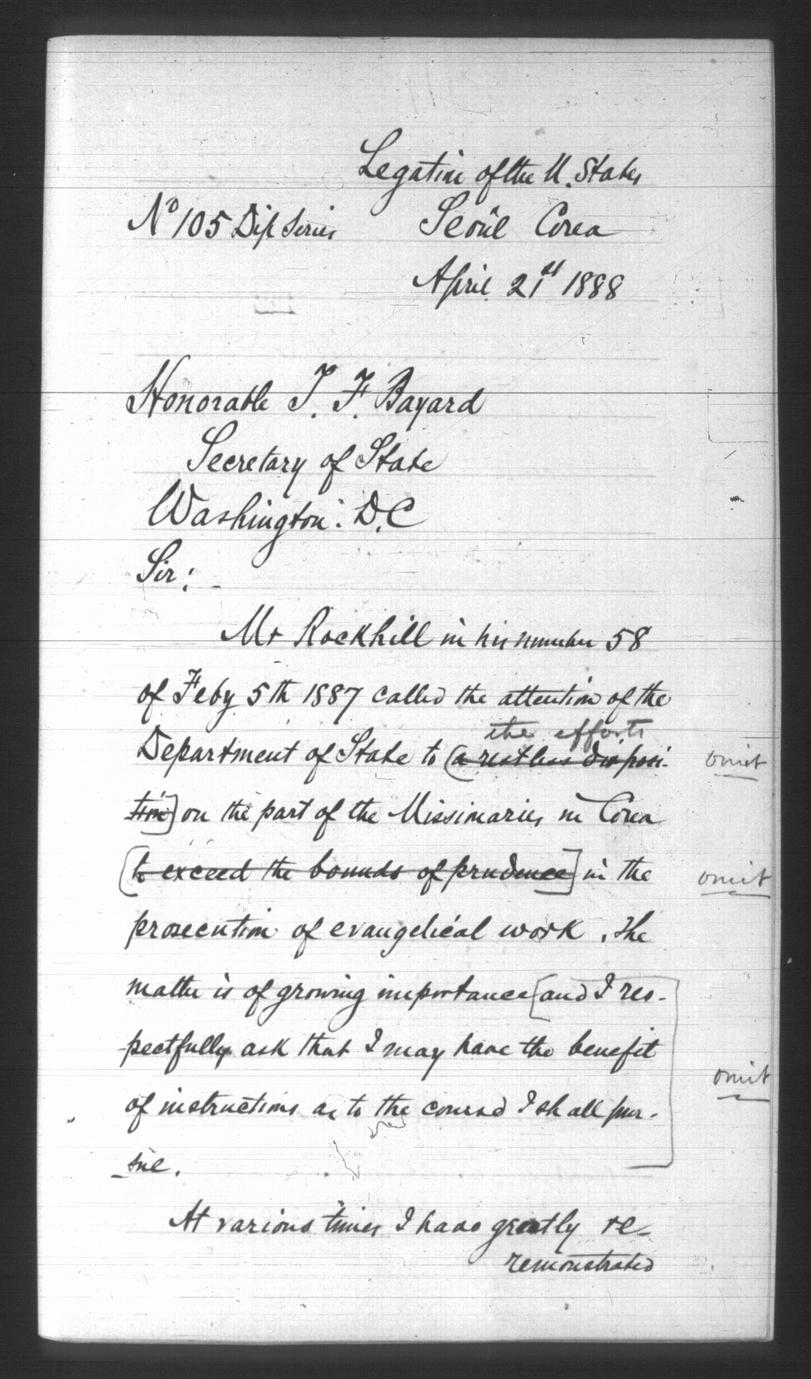 Legation of the U. States
No 105 Dip Series Seoul Corea
April 21st 1888
Honorable T. F. Bayard
Secretary of State
Washington. D.C
Sir:
Mr Rockhill in his number 58
of Feby 5th 1887 called the attention of the
the efforts
Department of State to (a restless disposi-
omit
tion] on the part of the Missionaries in Corea
[to exceed the bounds of prudence] in the
omit
prosecution of evangelical work. The
matter is of growing importance [and I res-
pectfully ask that I may have the benefit
omit
of instructions as to the course I shall pur-
sue.
At various times I have greatly re-
remonstrated